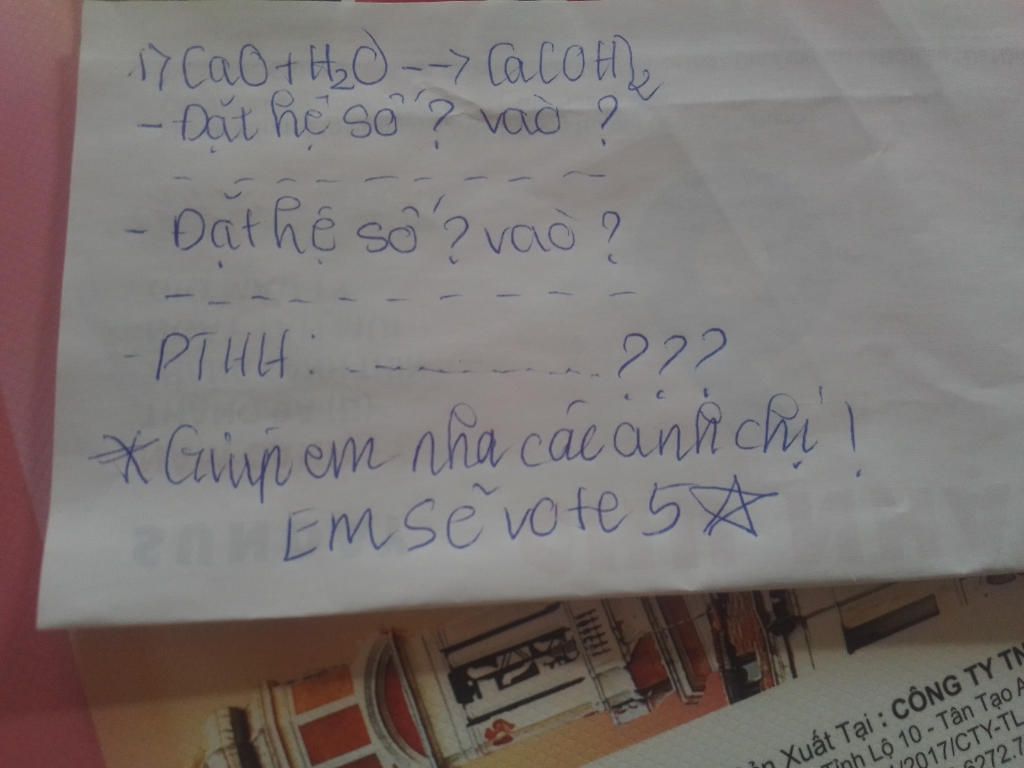 1) CaO + H₂O --> Ca(OH)₂
- Đặt hệ số ? vào ?
- Đặt hệ số ? vào ?
- PTHH: ............ ???
* Giúp em nha các anh chị !
Em sẽ vote 5☆
ản Xuất Tại : CÔNG TY TN
Tỉnh Lộ 10 - Tân Tạo A
/2017/CTY-TL
6272.7